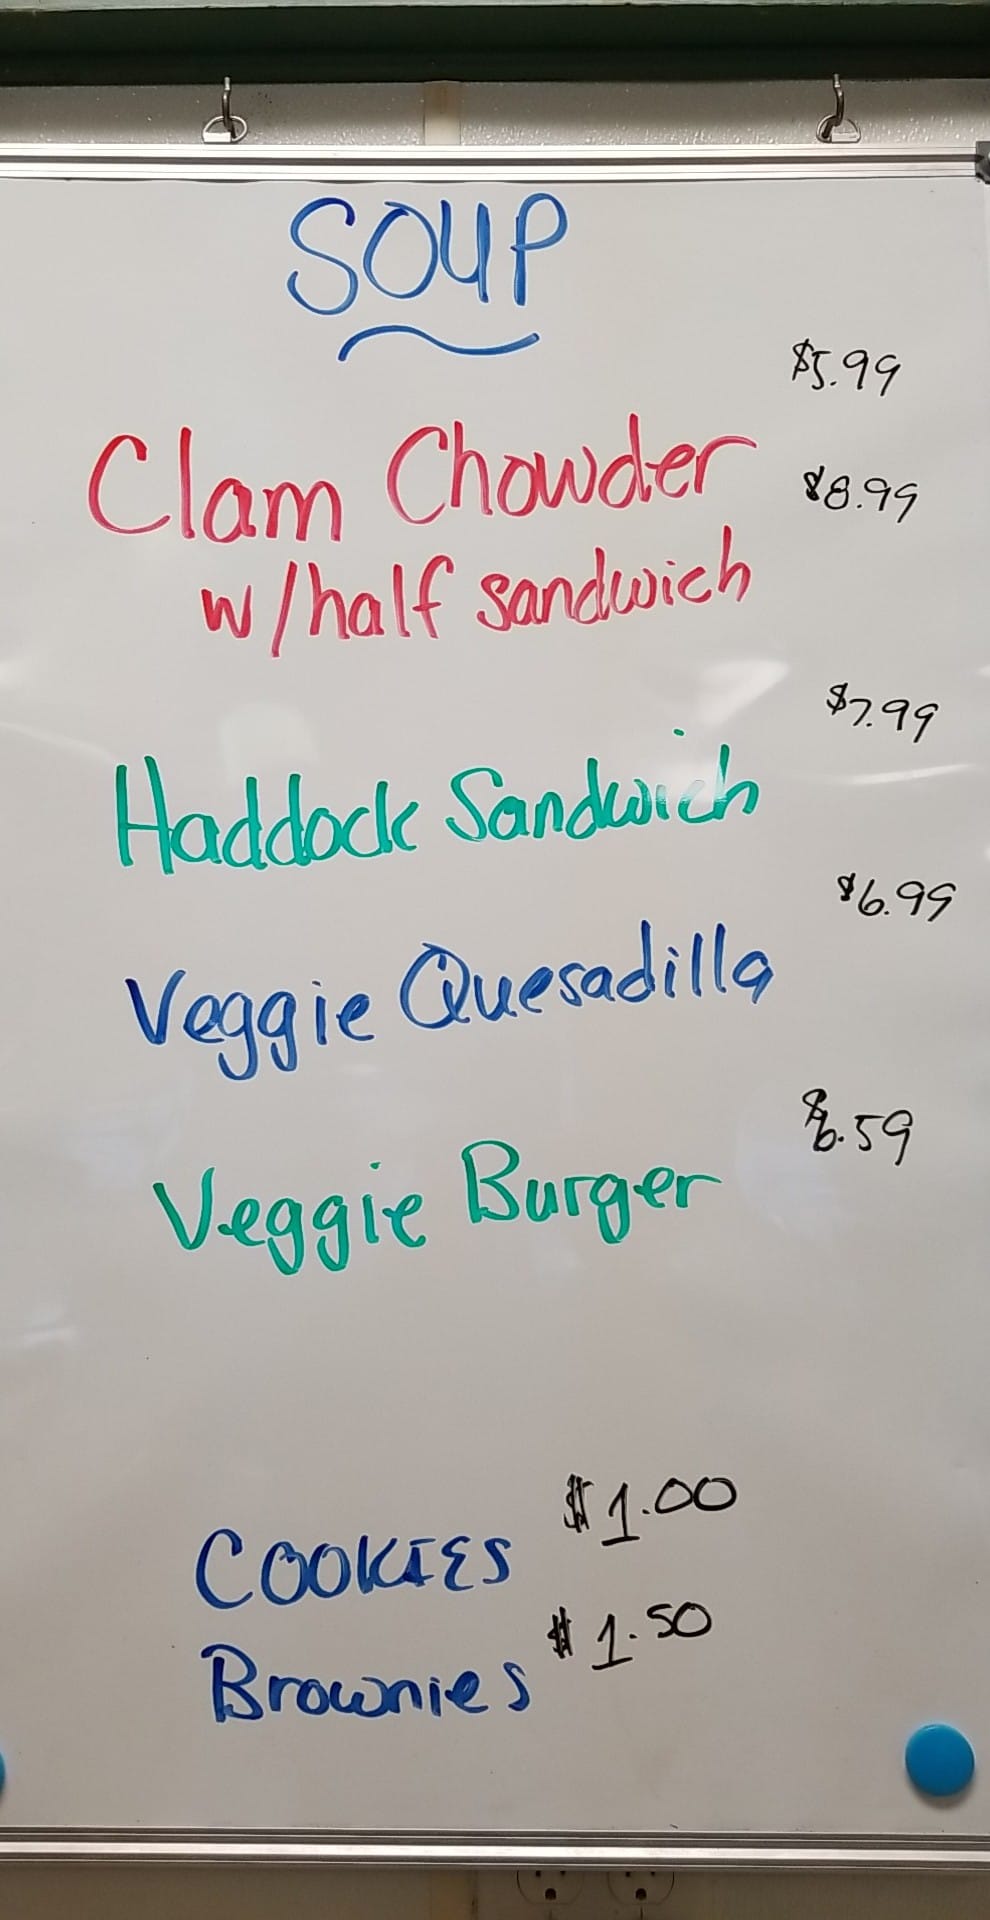 SOUP
$5.99
Clam Chowder $8.99
w/half sandwich
$7.99
Haddock Sandwich
$6.99
Veggie Quesadilla
$6.59
Veggie Burger
$1.00
COOKIES
$1.50
Brownies